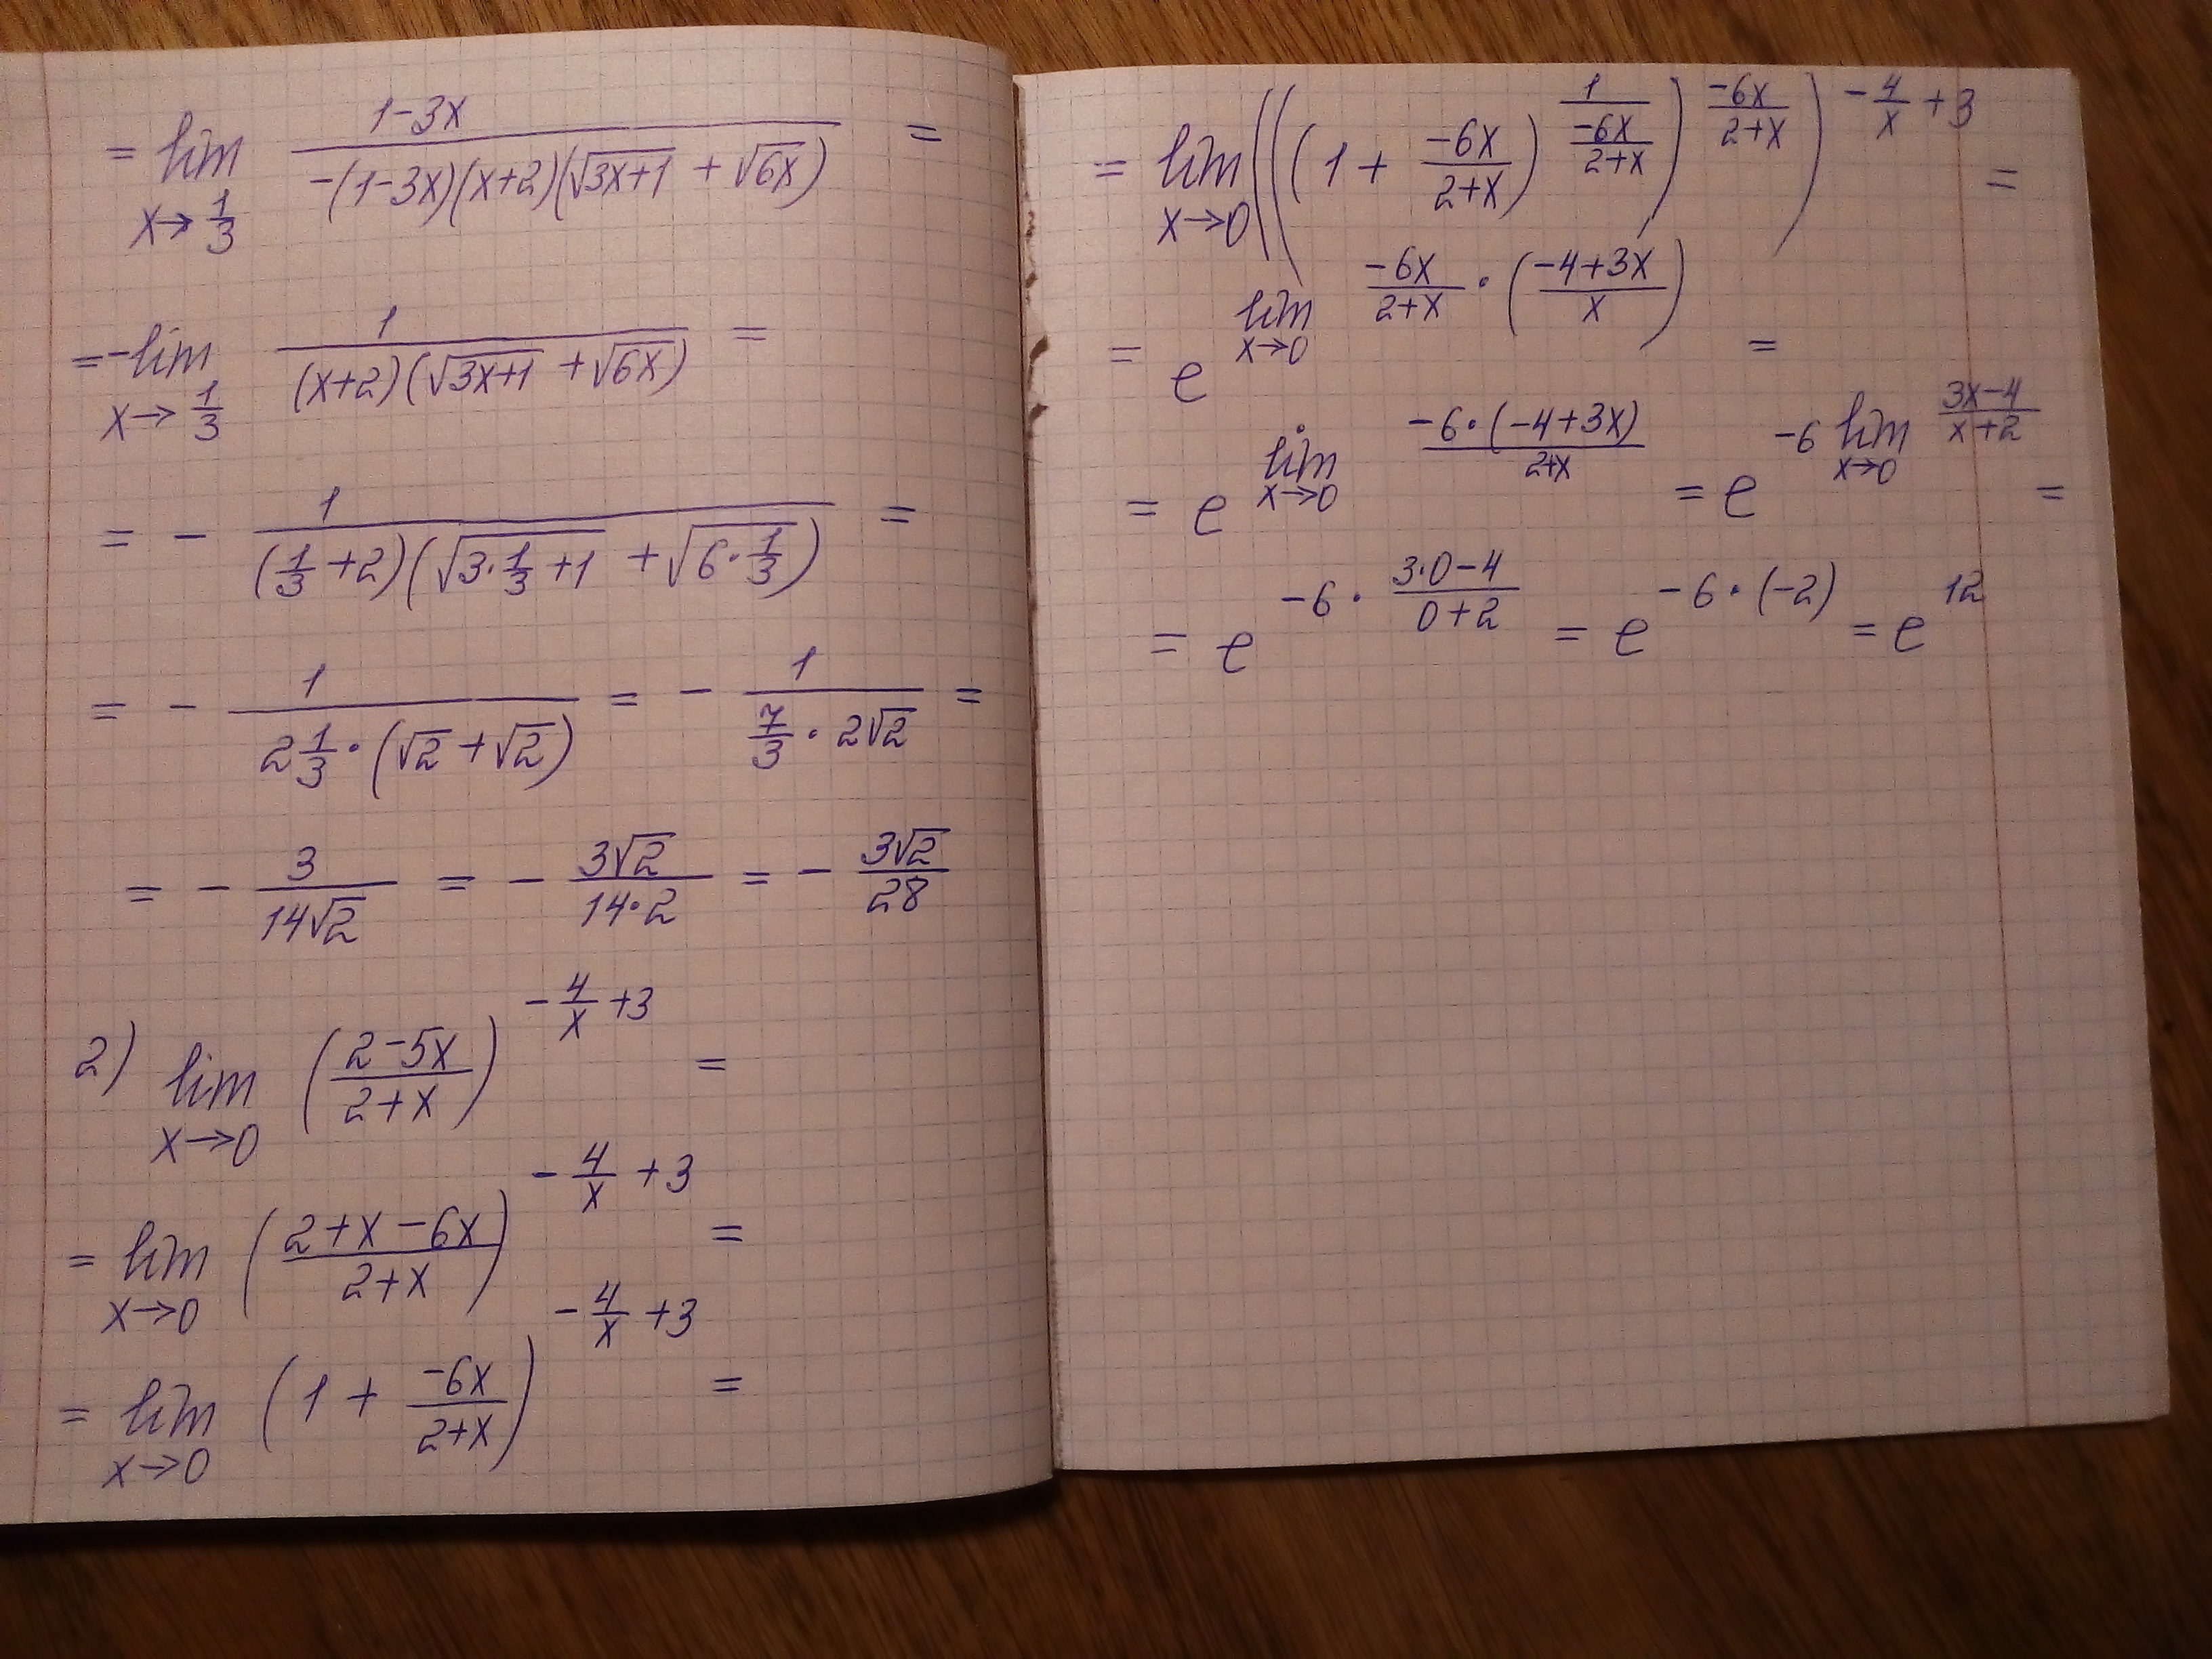 = lim x→1/3 (1-3x)/(-(1-3x)(x+2)(√(3x+1) + √(6x))) =
= -lim x→1/3 1/((x+2)(√(3x+1) + √(6x))) =
= - 1/((1/3 + 2)(√(3·1/3 + 1) + √(6·1/3))) =
= - 1/(2 1/3 · (√2 + √2)) = - 1/(7/3 · 2√2) =
= - 3/(14√2) = - 3√2/(14·2) = - 3√2/28
2) lim x→0 ((2-5x)/(2+x))^(-4/x + 3) =
= lim x→0 ((2+x-6x)/(2+x))^(-4/x + 3) =
= lim x→0 (1 + (-6x)/(2+x))^(-4/x + 3) =
= lim x→0 (((1 + (-6x)/(2+x))^(1/((-6x)/(2+x))))^((-6x)/(2+x)))^(-4/x + 3) =
= e^(lim x→0 (-6x)/(2+x) · ((-4+3x)/x)) =
= e^(lim x→0 (-6·(-4+3x))/(2+x)) = e^(-6 lim x→0 (3x-4)/(x+2)) =
= e^(-6 · (3·0-4)/(0+2)) = e^(-6·(-2)) = e^12